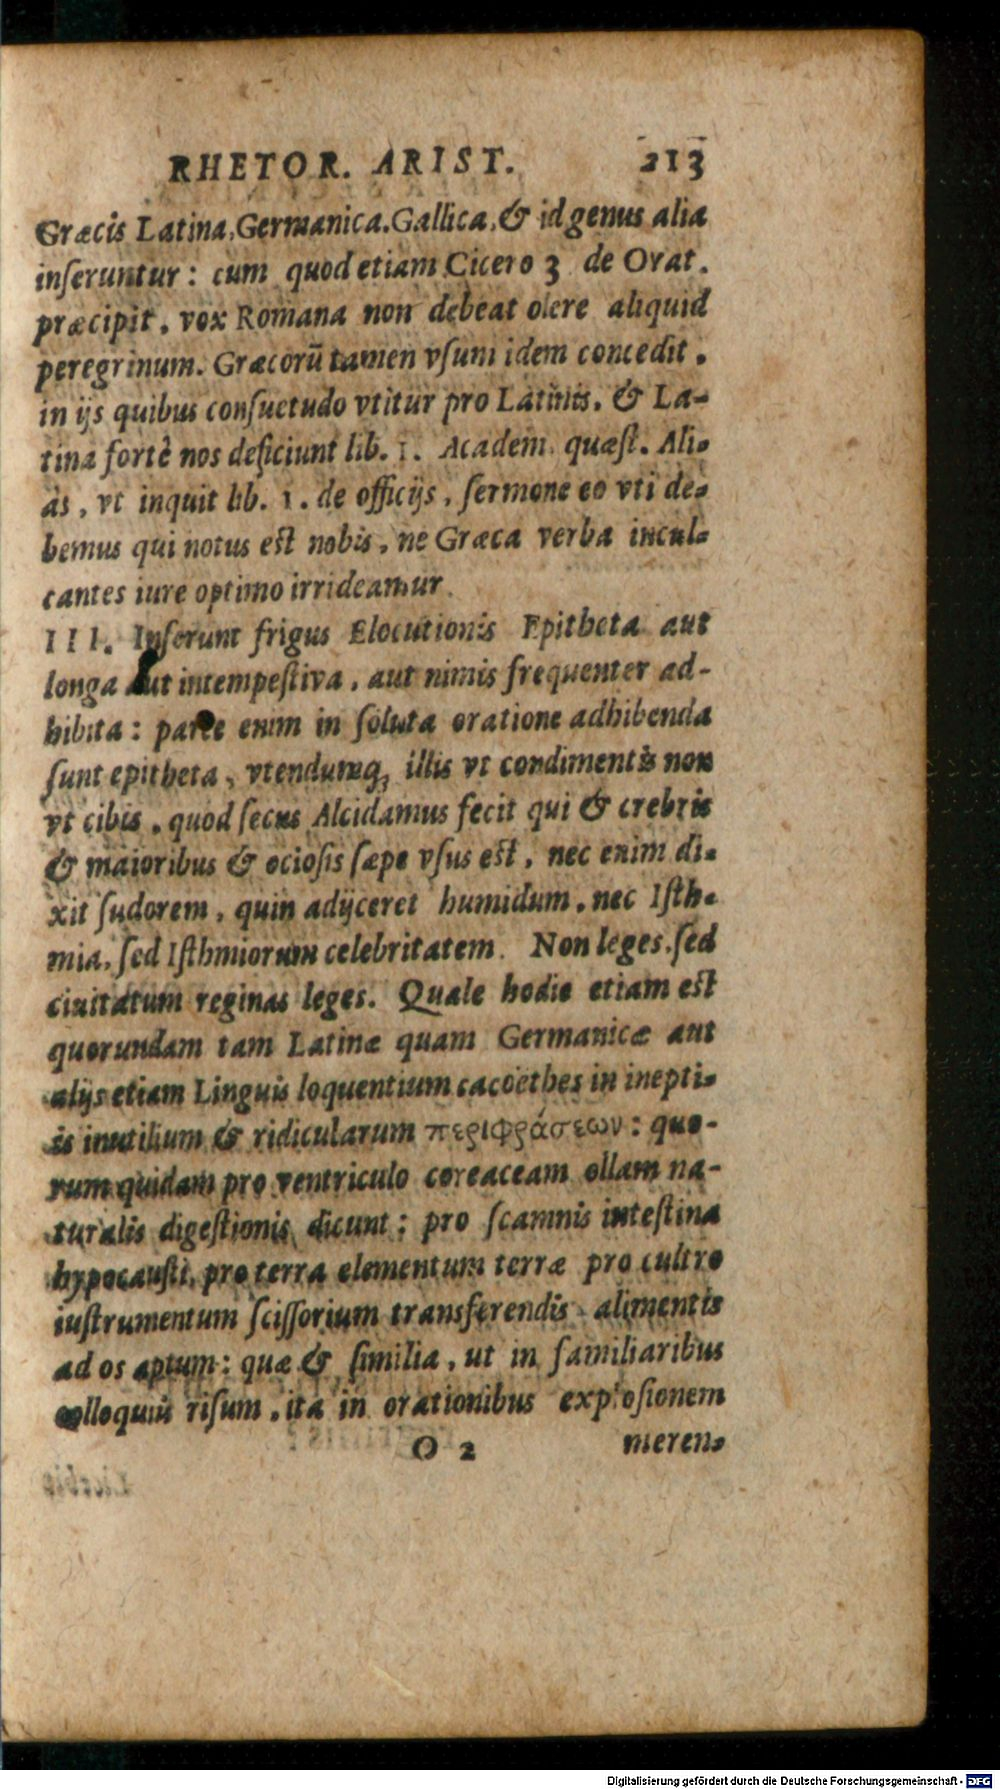 RHETOR. ARIST. 213
Græcis Latina, Germanica. Gallica, & id genus alia
inſeruntur: cum quod etiam Cicero 3 de Orat.
præcipit, vox Romana non debeat olere aliquid
peregrinum. Græcorū tamen vſum idem concedit,
in ijs quibus conſuetudo vtitur pro Latinis, & La-
tina fortè nos deficiunt lib. 1. Academ. quæſt. Ali-
às, vt inquit lib. 1. de officijs, ſermone eo vti de-
bemus qui notus eſt nobis, ne Græca verba incul-
cantes iure optimo irrideamur.
III. Inferunt frigus Elocutionis Epitheta aut
longa aut intempeſtiva, aut nimis frequenter ad-
hibita: parce enim in ſoluta oratione adhibenda
ſunt epitheta, vtendumq; illis vt condimentis non
vt cibis, quod ſecus Alcidamus fecit qui & crebris
& maioribus & ocioſis ſæpe vſus eſt, nec enim di-
xit ſudorem, quin adijceret humidum, nec Iſth-
mia, ſed Iſthmiorum celebritatem. Non leges, ſed
ciuitatum reginas leges. Quale hodie etiam eſt
quorundam tam Latinæ quam Germanicæ aut
alijs etiam Linguis loquentium cacoethes in inepti-
is inutilium & ridicularum περιφράσεων: quo-
rum quidam pro ventriculo coreaceam ollam na-
turalis digeſtionis dicunt: pro ſcamnis inteſtina
hypocauſti, pro terra elementum terræ pro cultro
iuſtrumentum ſciſſorium transferendis alimentis
ad os aptum: quæ & ſimilia, ut in familiaribus
colloquiis riſum, ita in orationibus exploſionem
O 2 meren-
Digitalisierung gefördert durch die Deutsche Forschungsgemeinschaft - DFG